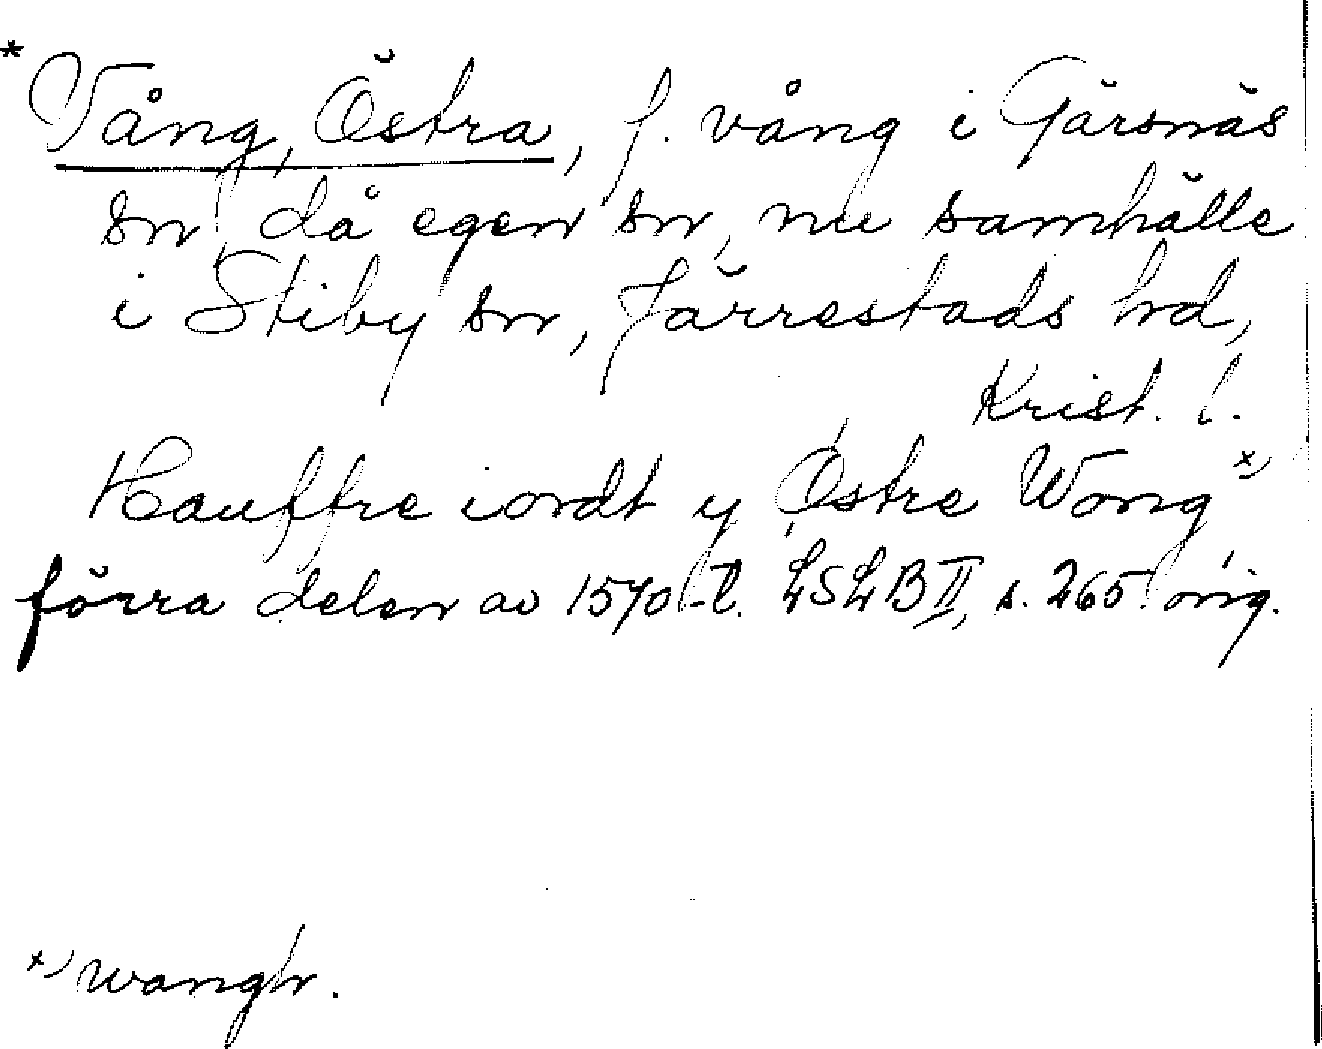 * Vång, Östra, f. vång i Gärsnäs
sn, då egen sn, nu samhälle
i Stiby sn, Järrestads hd,
Krist. l.
Hauffre iordt y Østre Wong x)
förra delen av 1570-t. LSLB II, s. 265. orig.
x) wangh.